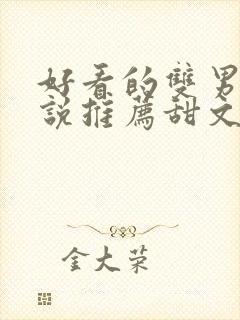 好看的雙男
說推薦甜文
金大荣